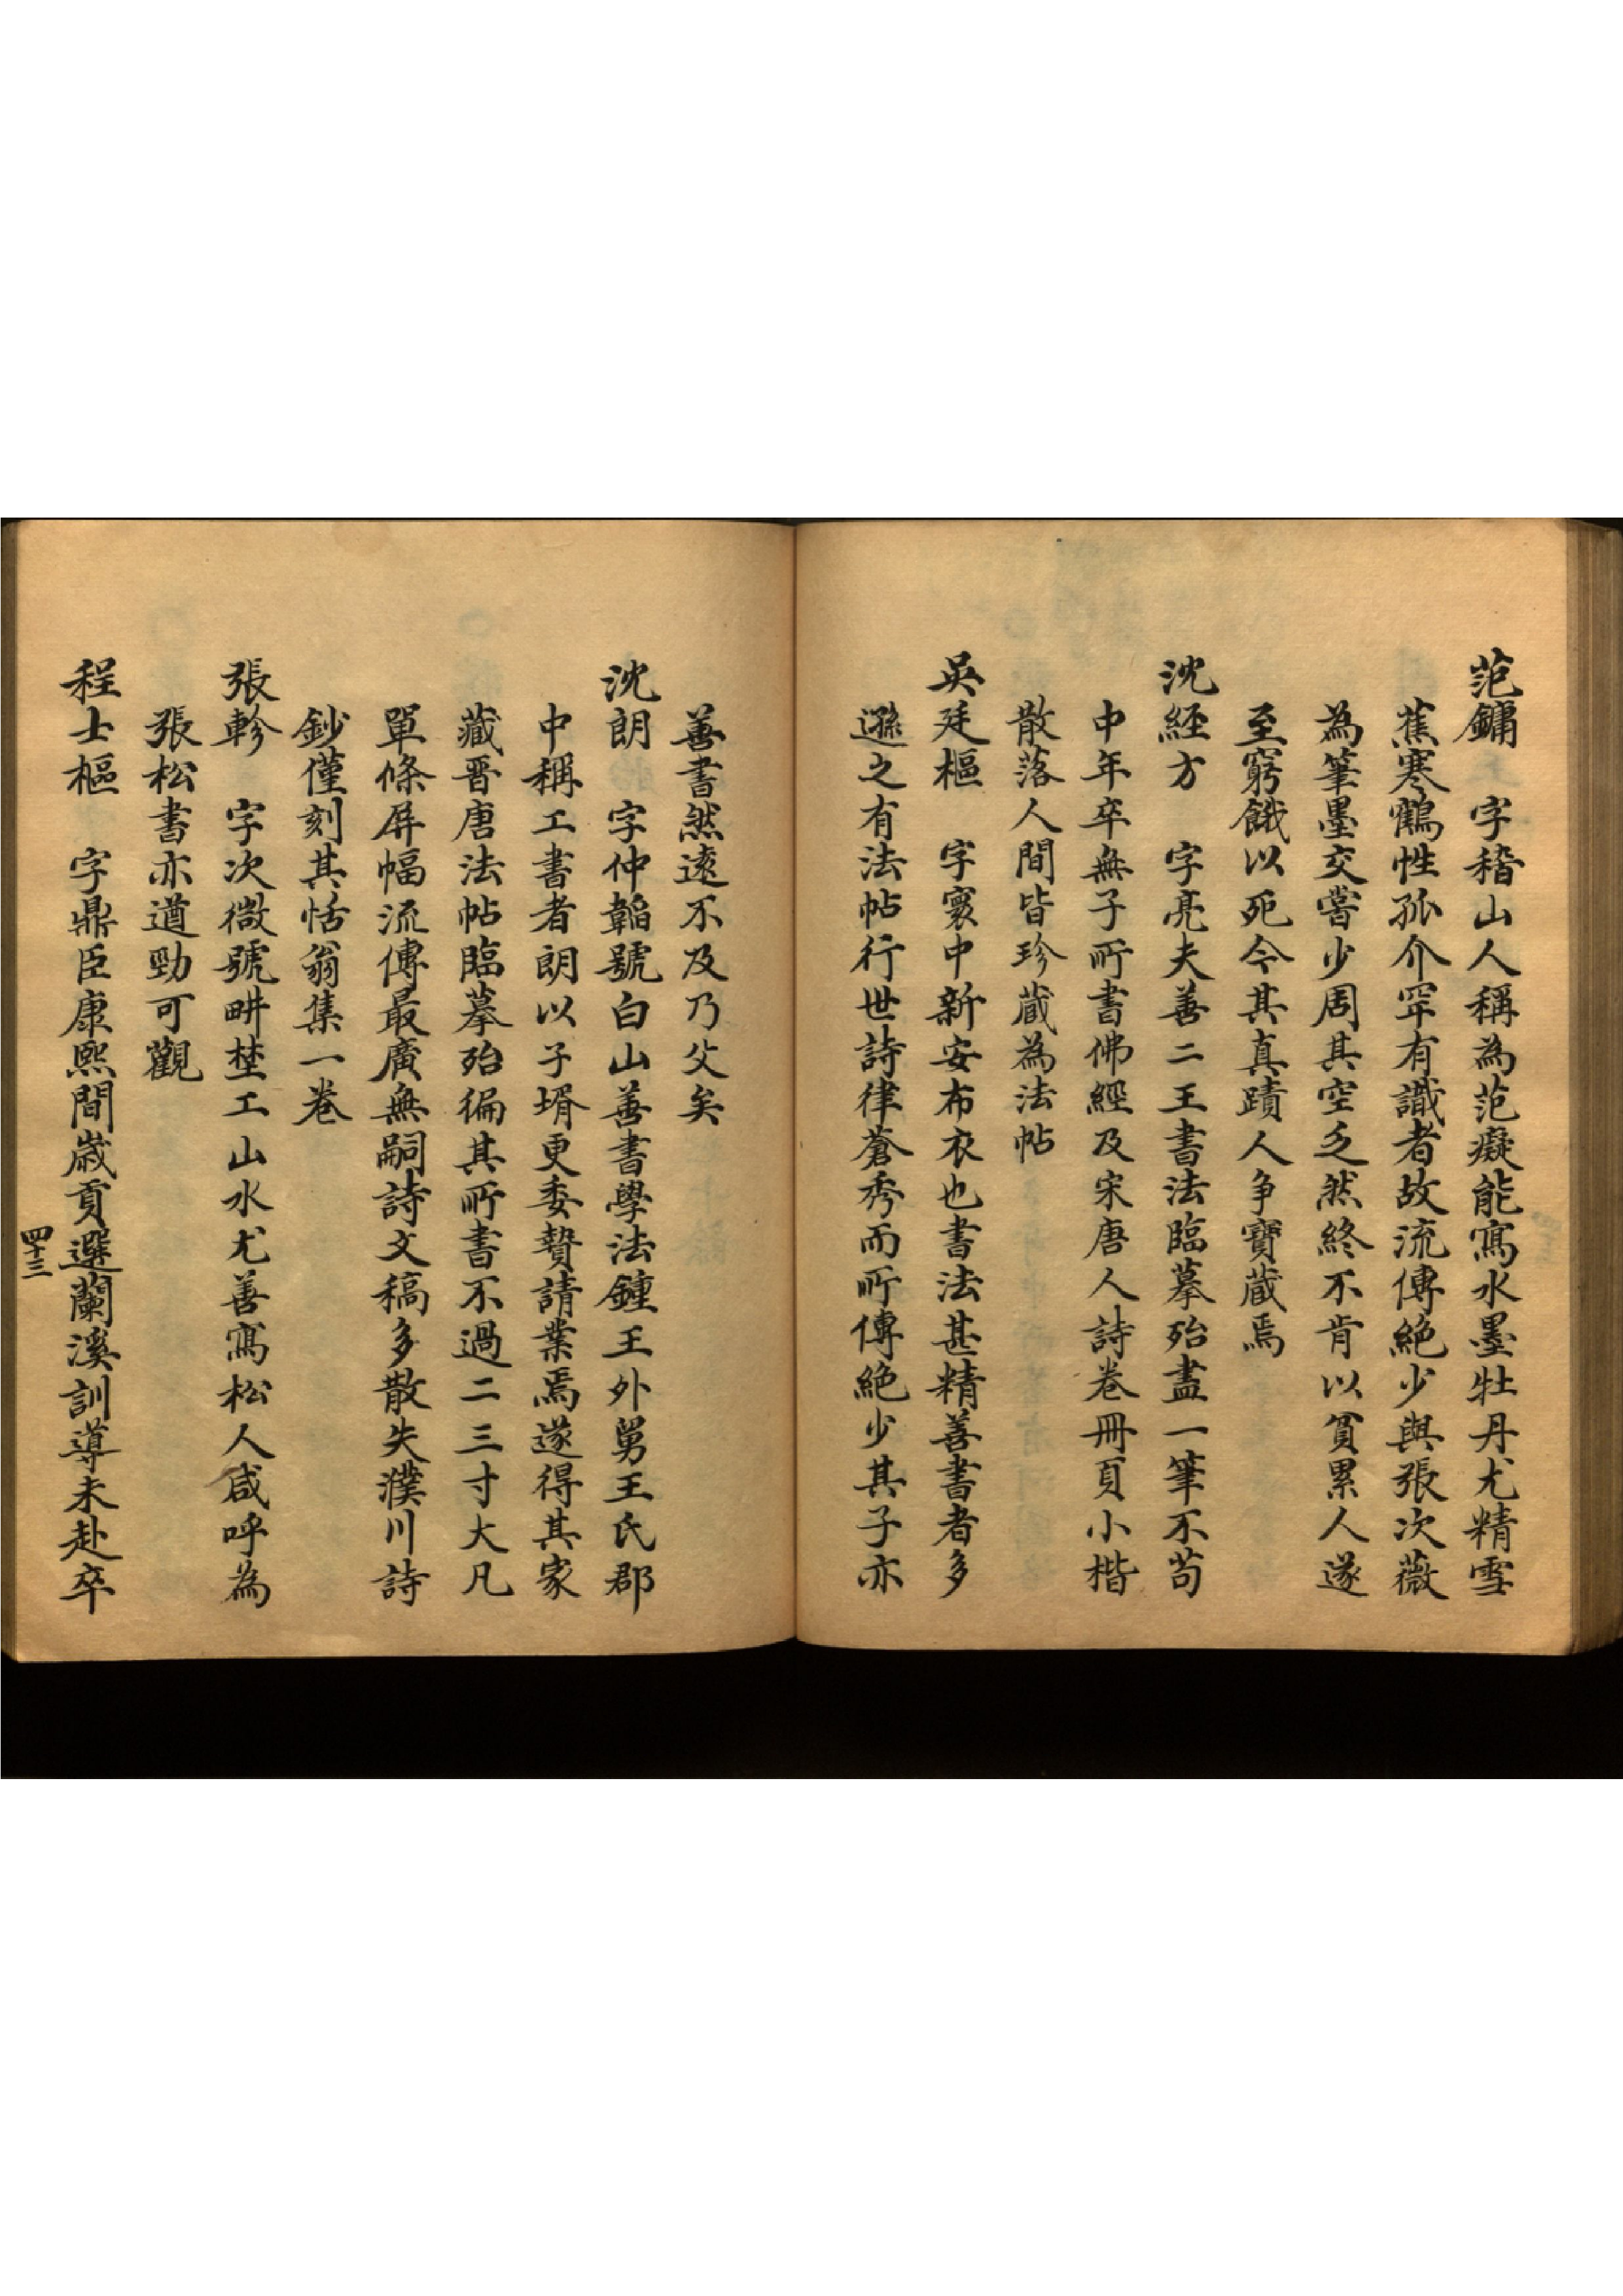 范鏞　字稽山人稱為范癡能寫水墨牡丹尤精雪
蕉寒鶴性孤介罕有識者故流傳絕少與張次薇
為筆墨交嘗少周其空乏然終不肯以貧累人遂
至窮餓以死今其真蹟人争寶藏焉
沈經方　字亮夫善二王書法臨摹殆盡一筆不苟
中年卒無子所書佛經及宋唐人詩卷冊頁小楷
散落人間皆珍藏為法帖
吳廷樞　字寰中新安布衣也書法甚精善書者多
遜之有法帖行世詩律蒼秀而所傳絕少其子亦
善書然遠不及乃父矣
沈朗　字仲韜號白山善書學法鍾王外舅王氏郡
中稱工書者朗以子壻更委贄請業焉遂得其家
藏晋唐法帖臨摹殆徧其所書不過二三寸大凡
單條屏幅流傳最廣無嗣詩文稿多散失濮川詩
鈔僅刻其恬翁集一卷
張軫　字次微號畊埜工山水尤善寫松人咸呼為
張松書亦遒勁可觀
程士樞　字鼎臣康熙間歲貢選蘭溪訓導未赴卒
四十三